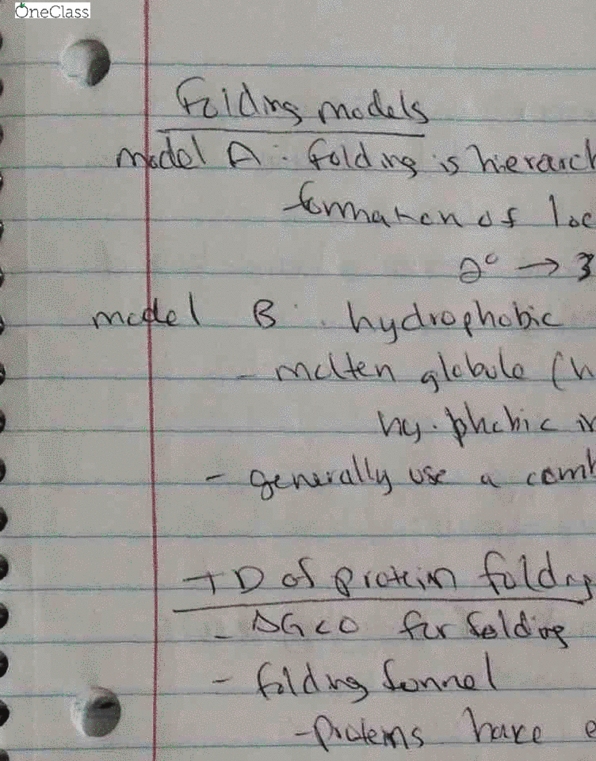 OneClass
Folding models
model A : folding is hierarch
formation of loc
2° → 3
model B : hydrophobic
- molten globule (h
hy. phobic in
- generally use a comb
TD of protein folding
- ΔG<0 for folding
- folding funnel
- proteins have e